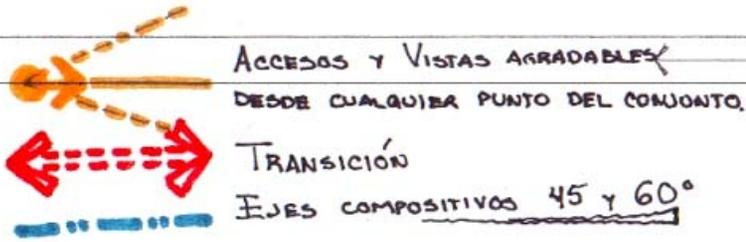 ACCESOS Y VISTAS AGRADABLES
DESDE CUALQUIER PUNTO DEL CONJUNTO.
TRANSICIÓN
EJES COMPOSITIVOS 45 Y 60°